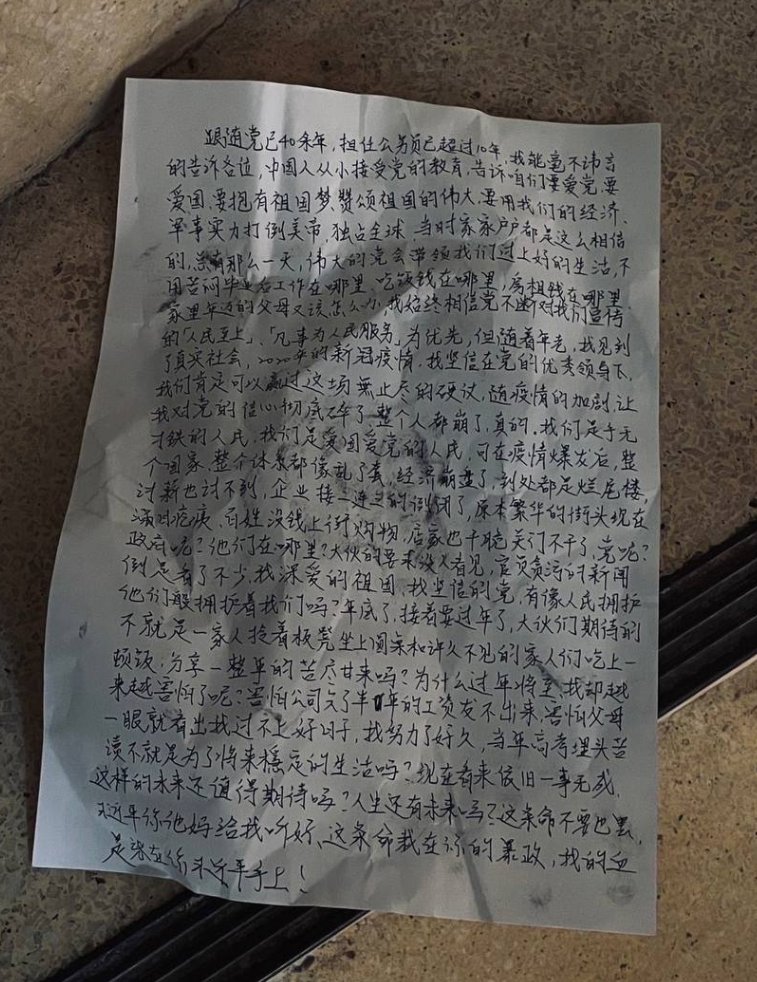 跟随党已40余年，担任公务员已超过10年，我能毫不讳言
的告诉各位，中国人从小接受党的教育，告诉咱们要爱党要
爱国、要抱有祖国梦、赞颂祖国的伟大、要用我们的经济、
军事实力打倒美帝，独占全球，当时家家户户都是这么相信
的，总有那么一天，伟大的党会带领我们过上好的生活，不
用苦闷毕业后工作在哪里、吃饭钱在哪里、房租钱在哪里、
家里年迈的父母又该怎么办，我始终相信党不断对我们宣传
的「人民至上」、「凡事为人民服务」为优先，但随着年老，我见到
了真实社会，2020年的新冠疫情，我坚信在党的优秀领导下，
我们肯定可以赢过这场无止尽的硬仗，随疫情的加剧，让
我对党的信心彻底碎了，整个人都崩了，真的，我们是手无
寸铁的人民，我们是爱国爱党的人民，可在疫情爆发后，整
个国家、整个体系都像乱了套，经济崩盘了，到处都是烂尾楼，
讨薪也讨不到，企业接二连三的倒闭了，原本繁华的街头现在
满目疮痍、百姓没钱上街购物，店家也干脆关门不干了，党呢？
政府呢？他们在哪里？大伙的要求没人看见，官员贪污的新闻
倒是看了不少，我深爱的祖国、我坚信的党，有像人民拥护
他们般拥护着我们吗？年底了，接着要过年了，大伙们期待的
不就是一家人拎着板凳坐上圆桌和许久不见的家人们吃上一
顿饭，分享一整年的苦尽甘来吗？为什么过年将至，我却越
来越害怕了呢？害怕公司欠了半年的工资发不出来，害怕父母
一眼就看出我过不上好日子，我努力了好久，当年高考埋头苦
读不就是为了将来稳定的生活吗？现在看来依旧一事无成，
这样的未来还值得期待吗？人生还有未来吗？这条命不要也罢，
习近平你他妈给我听好，这条命栽在你的暴政，我的血
是染在你习近平手上！